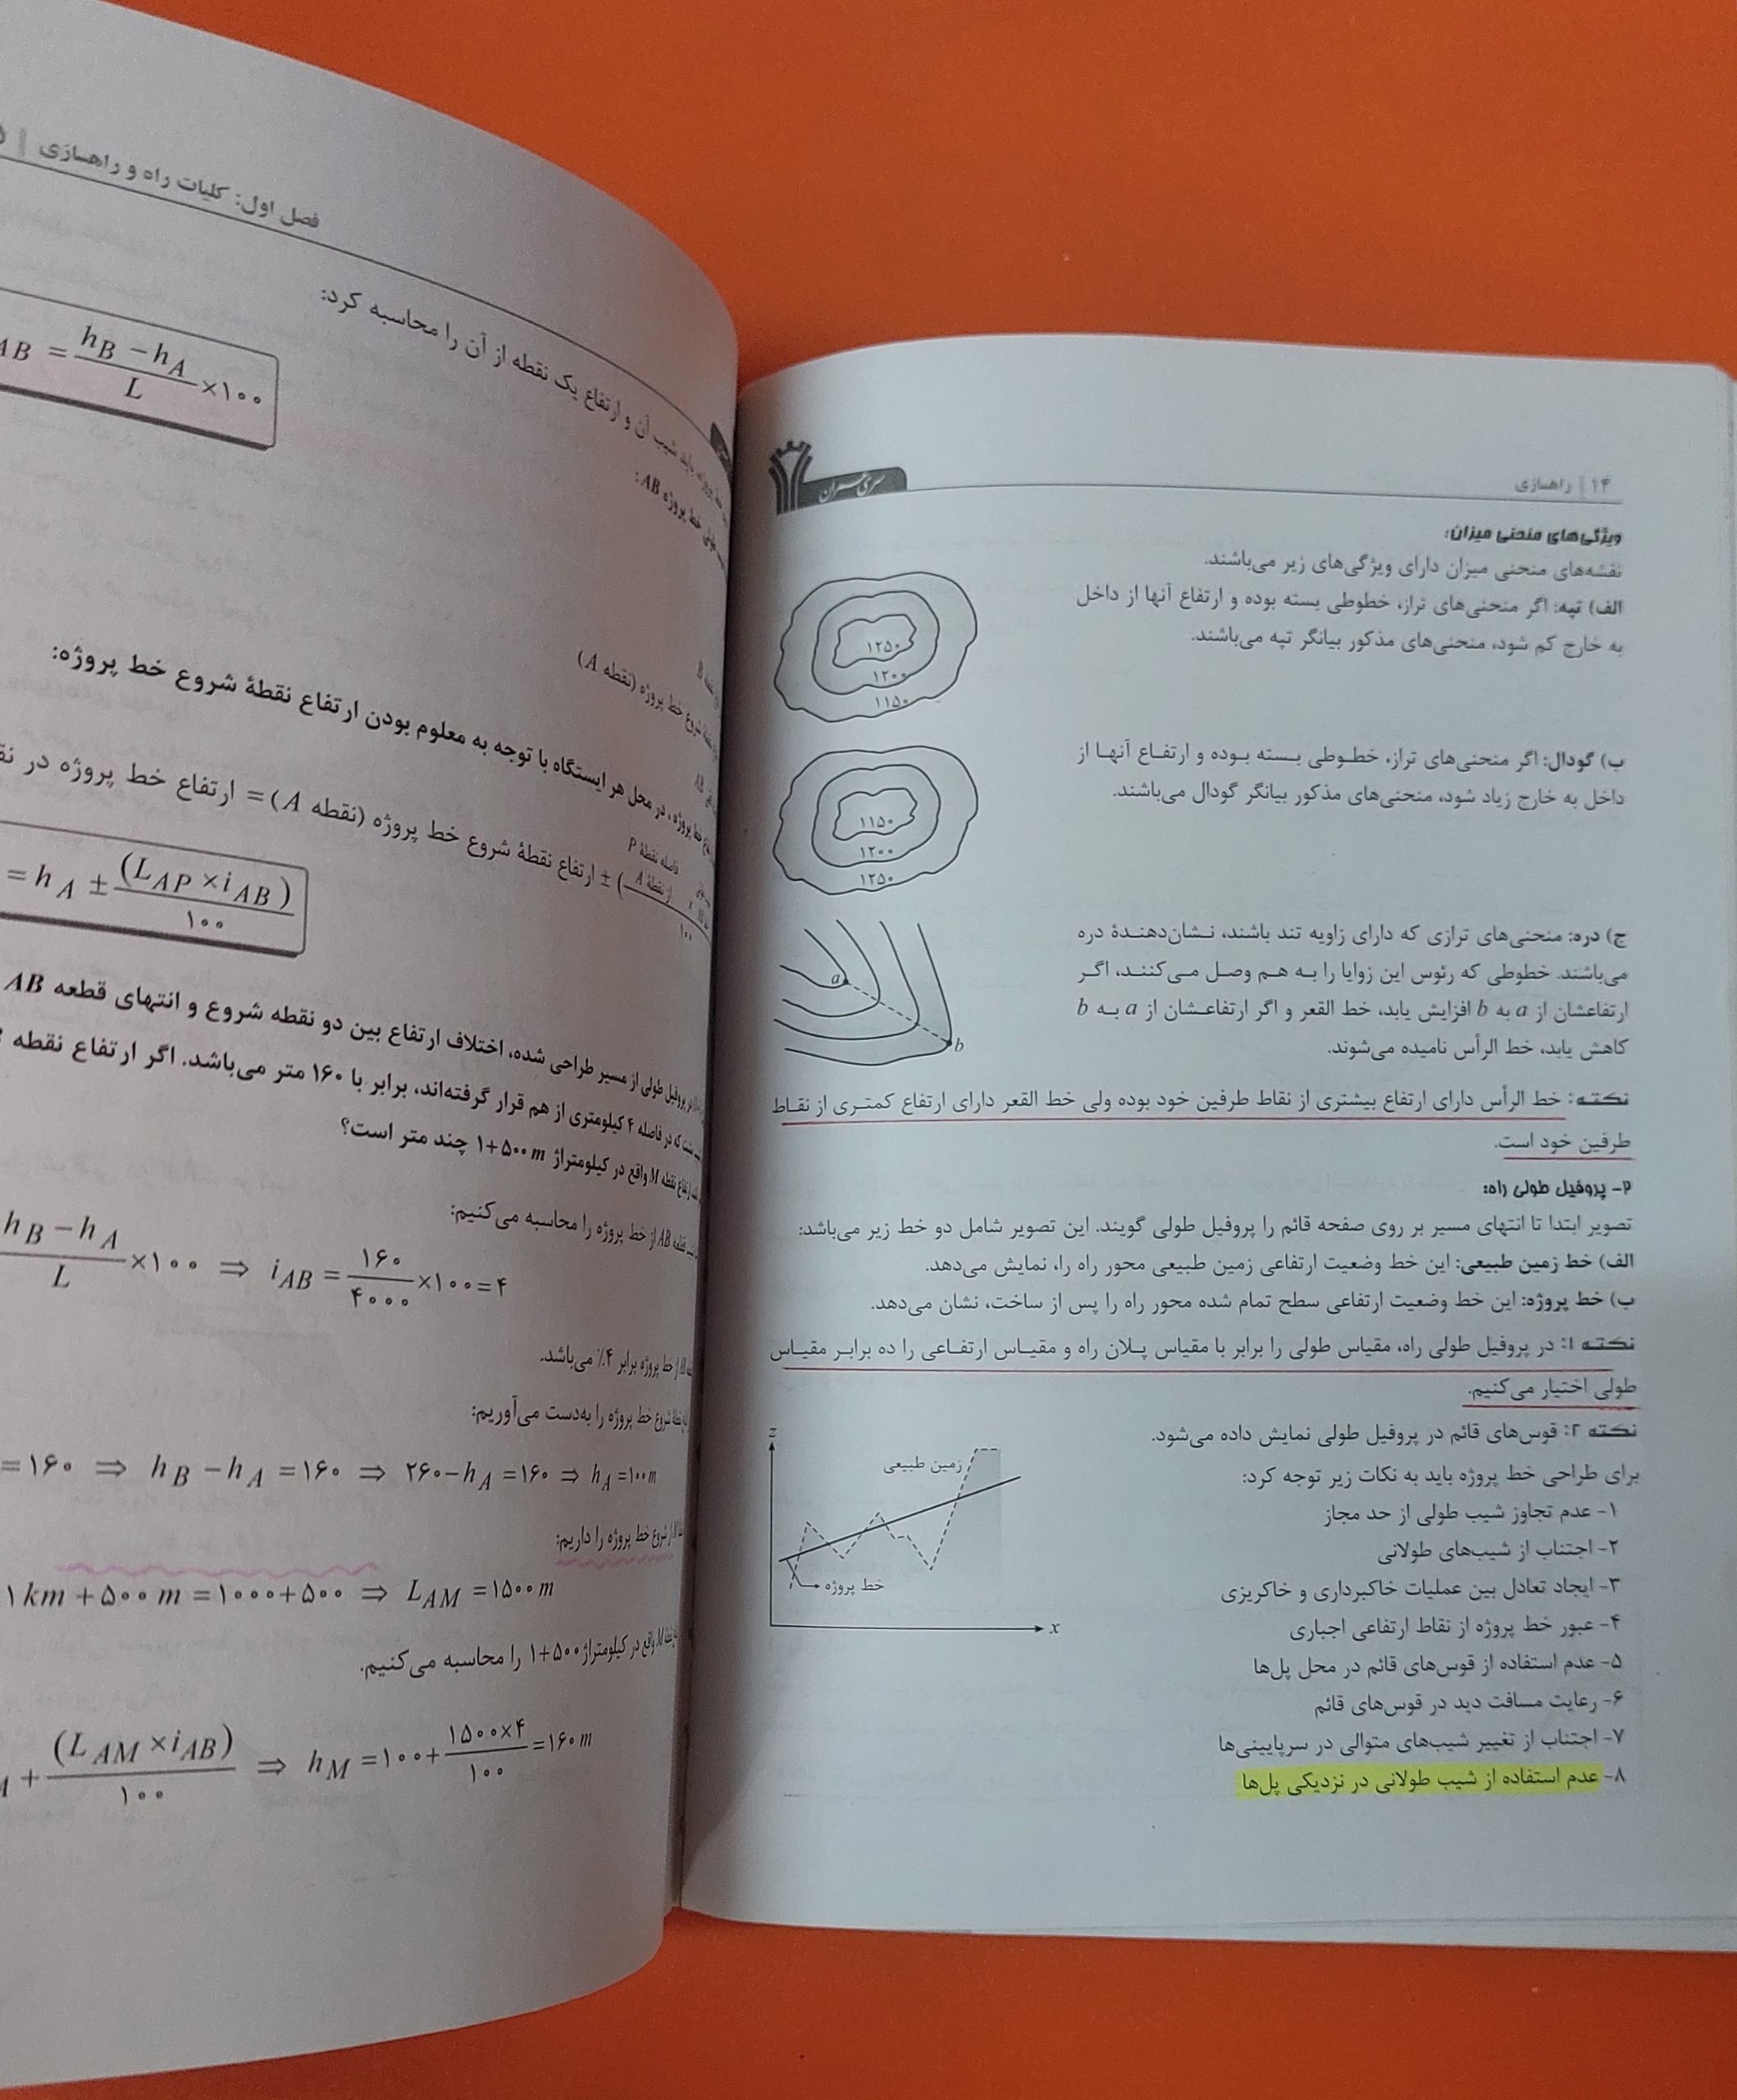 ۱۴ | راهسازی
سری عمران
ویژگی‌های منحنی میزان:
نقشه‌های منحنی میزان دارای ویژگی‌های زیر می‌باشند.
الف) تپه: اگر منحنی‌های تراز، خطوطی بسته بوده و ارتفاع آنها از داخل
به خارج کم شود، منحنی‌های مذکور بیانگر تپه می‌باشند.
۱۲۵۰
۱۲۰۰
۱۱۵۰
ب) گودال: اگر منحنی‌های تراز، خطوطی بسته بوده و ارتفاع آنها از
داخل به خارج زیاد شود، منحنی‌های مذکور بیانگر گودال می‌باشند.
۱۱۵۰
۱۲۰۰
۱۲۵۰
ج) دره: منحنی‌های ترازی که دارای زاویه تند باشند، نشان‌دهندهٔ دره
می‌باشند. خطوطی که رئوس این زوایا را به هم وصل می‌کنند، اگر
ارتفاعشان از a به b افزایش یابد، خط القعر و اگر ارتفاعشان از a به b
کاهش یابد، خط الرأس نامیده می‌شوند.
a
b
نکته: خط الرأس دارای ارتفاع بیشتری از نقاط طرفین خود بوده ولی خط القعر دارای ارتفاع کمتری از نقاط
طرفین خود است.
۲- پروفیل طولی راه:
تصویر ابتدا تا انتهای مسیر بر روی صفحه قائم را پروفیل طولی گویند. این تصویر شامل دو خط زیر می‌باشد:
الف) خط زمین طبیعی: این خط وضعیت ارتفاعی زمین طبیعی محور راه را، نمایش می‌دهد.
ب) خط پروژه: این خط وضعیت ارتفاعی سطح تمام شده محور راه را پس از ساخت، نشان می‌دهد.
نکته ۱: در پروفیل طولی راه، مقیاس طولی را برابر با مقیاس پلان راه و مقیاس ارتفاعی را ده برابر مقیاس
طولی اختیار می‌کنیم.
نکته ۲: قوس‌های قائم در پروفیل طولی نمایش داده می‌شود.
برای طراحی خط پروژه باید به نکات زیر توجه کرد:
۱- عدم تجاوز شیب طولی از حد مجاز
۲- اجتناب از شیب‌های طولانی
۳- ایجاد تعادل بین عملیات خاکبرداری و خاکریزی
۴- عبور خط پروژه از نقاط ارتفاعی اجباری
۵- عدم استفاده از قوس‌های قائم در محل پل‌ها
۶- رعایت مسافت دید در قوس‌های قائم
۷- اجتناب از تغییر شیب‌های متوالی در سرپایینی‌ها
۸- عدم استفاده از شیب طولانی در نزدیکی پل‌ها
z
زمین طبیعی
خط پروژه
x
فصل اول: کلیات راه و راهسازی |
شیب آن و ارتفاع یک نقطه از آن را محاسبه کرد:
خط پروژه AB:
AB = (hB − hA)/L ×۱۰۰
نقطه B
شروع خط پروژه (نقطه A)
AB
خط پروژه، در محل هر ایستگاه با توجه به معلوم بودن ارتفاع نقطهٔ شروع خط پروژه:
فاصله نقطهٔ P
از نقطهٔ A
۱۰۰
) ± ارتفاع نقطهٔ شروع خط پروژه (نقطه A) = ارتفاع خط پروژه در
= hA ± (LAP × iAB)/۱۰۰
پروفیل طولی از مسیر طراحی شده، اختلاف ارتفاع بین دو نقطه شروع و انتهای قطعه AB
که در فاصله ۴ کیلومتری از هم قرار گرفته‌اند، برابر با ۱۶۰ متر می‌باشد. اگر ارتفاع نقطه
ارتفاع نقطه M واقع در کیلومتراژ ۱+۵۰۰ m چند متر است؟
قطعه AB از خط پروژه را محاسبه می‌کنیم:
(hB − hA)/L ×۱۰۰ ⇒ iAB = ۱۶۰/۴۰۰۰ ×۱۰۰ = ۴
از خط پروژه برابر ۴٪ می‌باشد.
نقطهٔ شروع خط پروژه را به‌دست می‌آوریم:
= ۱۶۰ ⇒ hB − hA = ۱۶۰ ⇒ ۲۶۰ − hA = ۱۶۰ ⇒ hA = ۱۰۰ m
شروع خط پروژه را داریم:
۱ km + ۵۰۰ m = ۱۰۰۰ + ۵۰۰ ⇒ LAM = ۱۵۰۰ m
نقطه M واقع در کیلومتراژ ۱+۵۰۰ را محاسبه می‌کنیم.
+ (LAM × iAB)/۱۰۰ ⇒ hM = ۱۰۰ + (۱۵۰۰×۴)/۱۰۰ = ۱۶۰ m